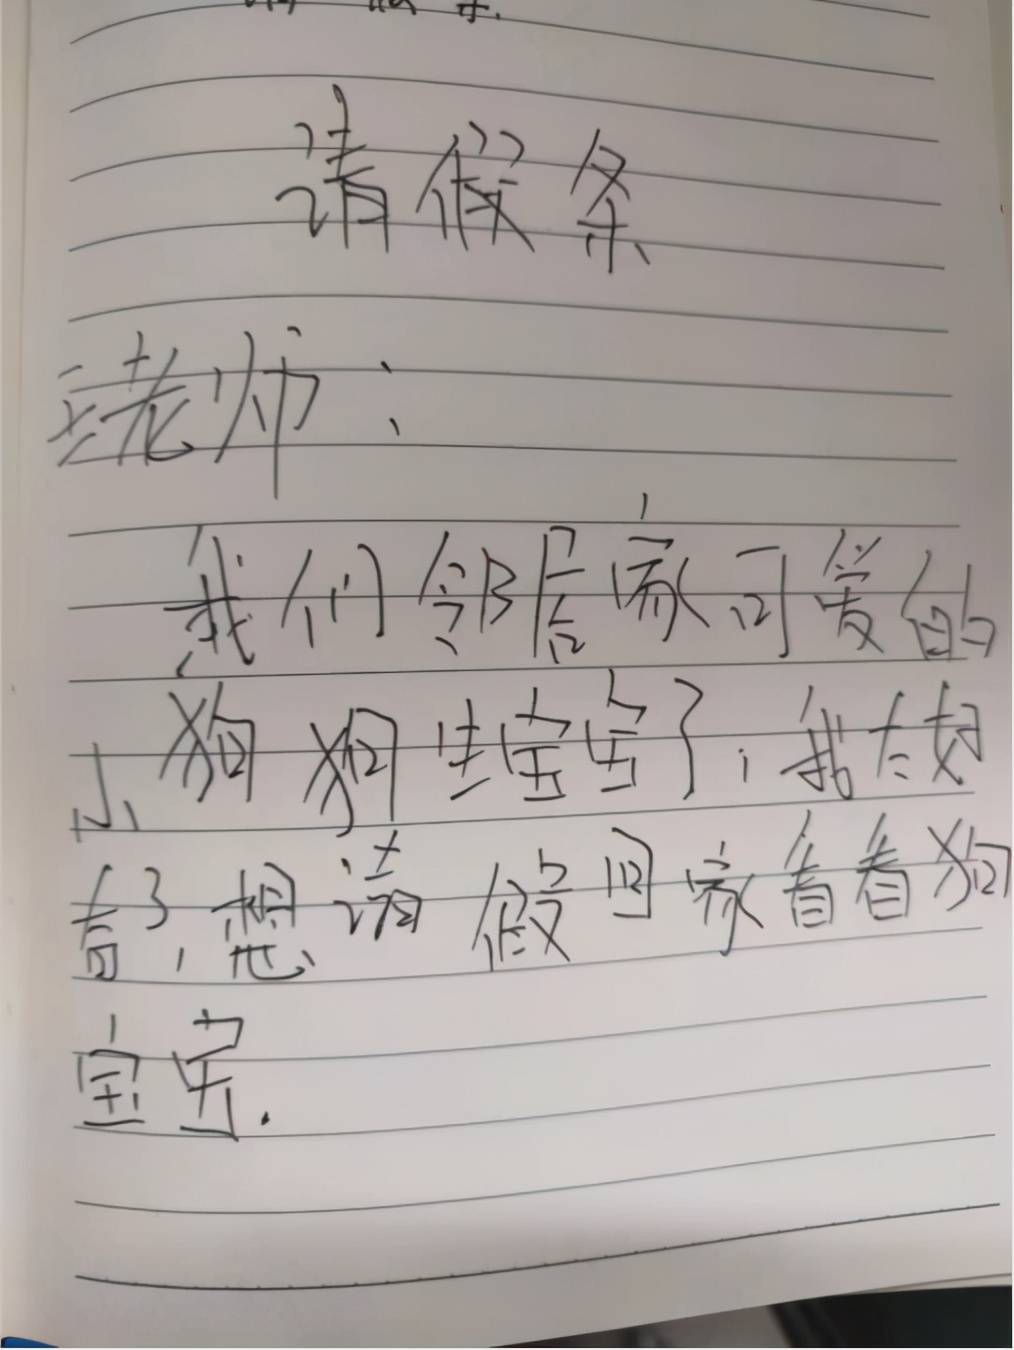 请假条
老师：
我们邻居家可爱的
小狗狗生宝宝了，我太好
奇了，想请假回家看看狗
宝宝.